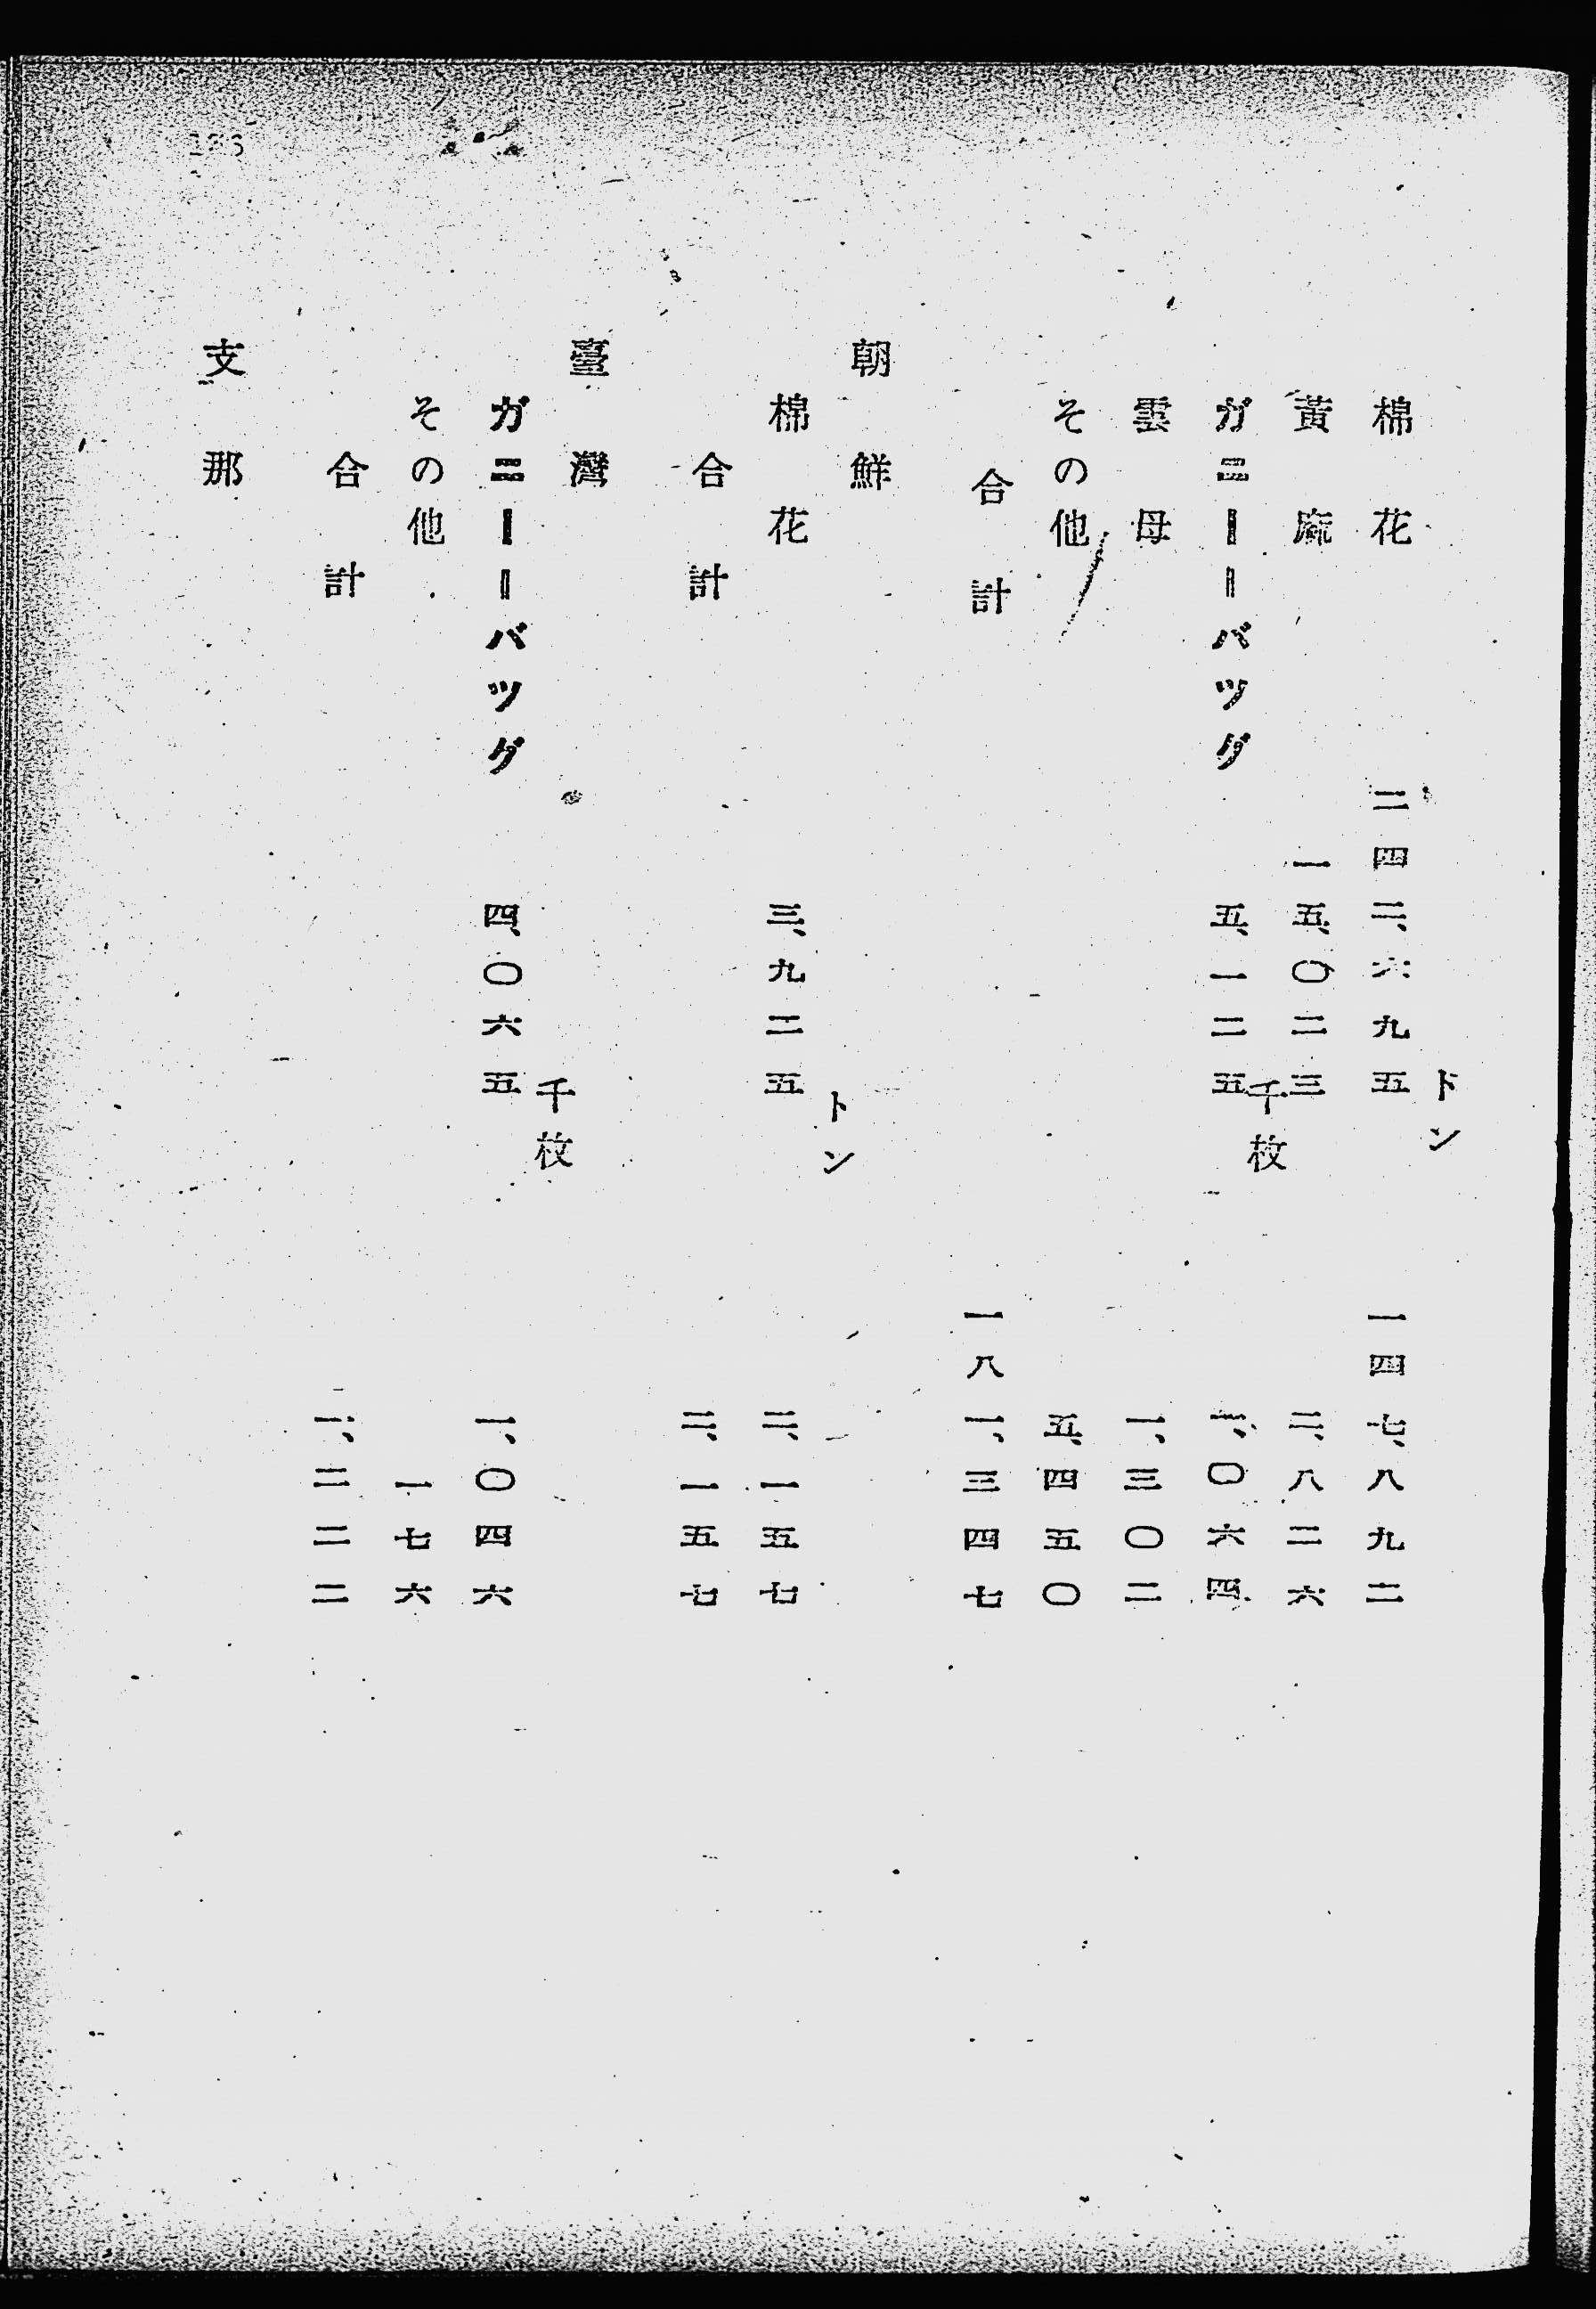 棉花　二四二、六九五トン　一四七、八九二
黃麻　一五、〇二三　二、八二六
ガニーーバツグ　五、一二五千枚　一、〇六四
雲母　一、三〇二
その他　五、四五〇
合計　一八一、三四七
朝鮮
棉花　三、九二五トン　二、一五七
合計　二、一五七
臺灣
ガニーーバツグ　四、〇六五千枚　一、〇四六
その他　一七六
合計　一、二二二
支那